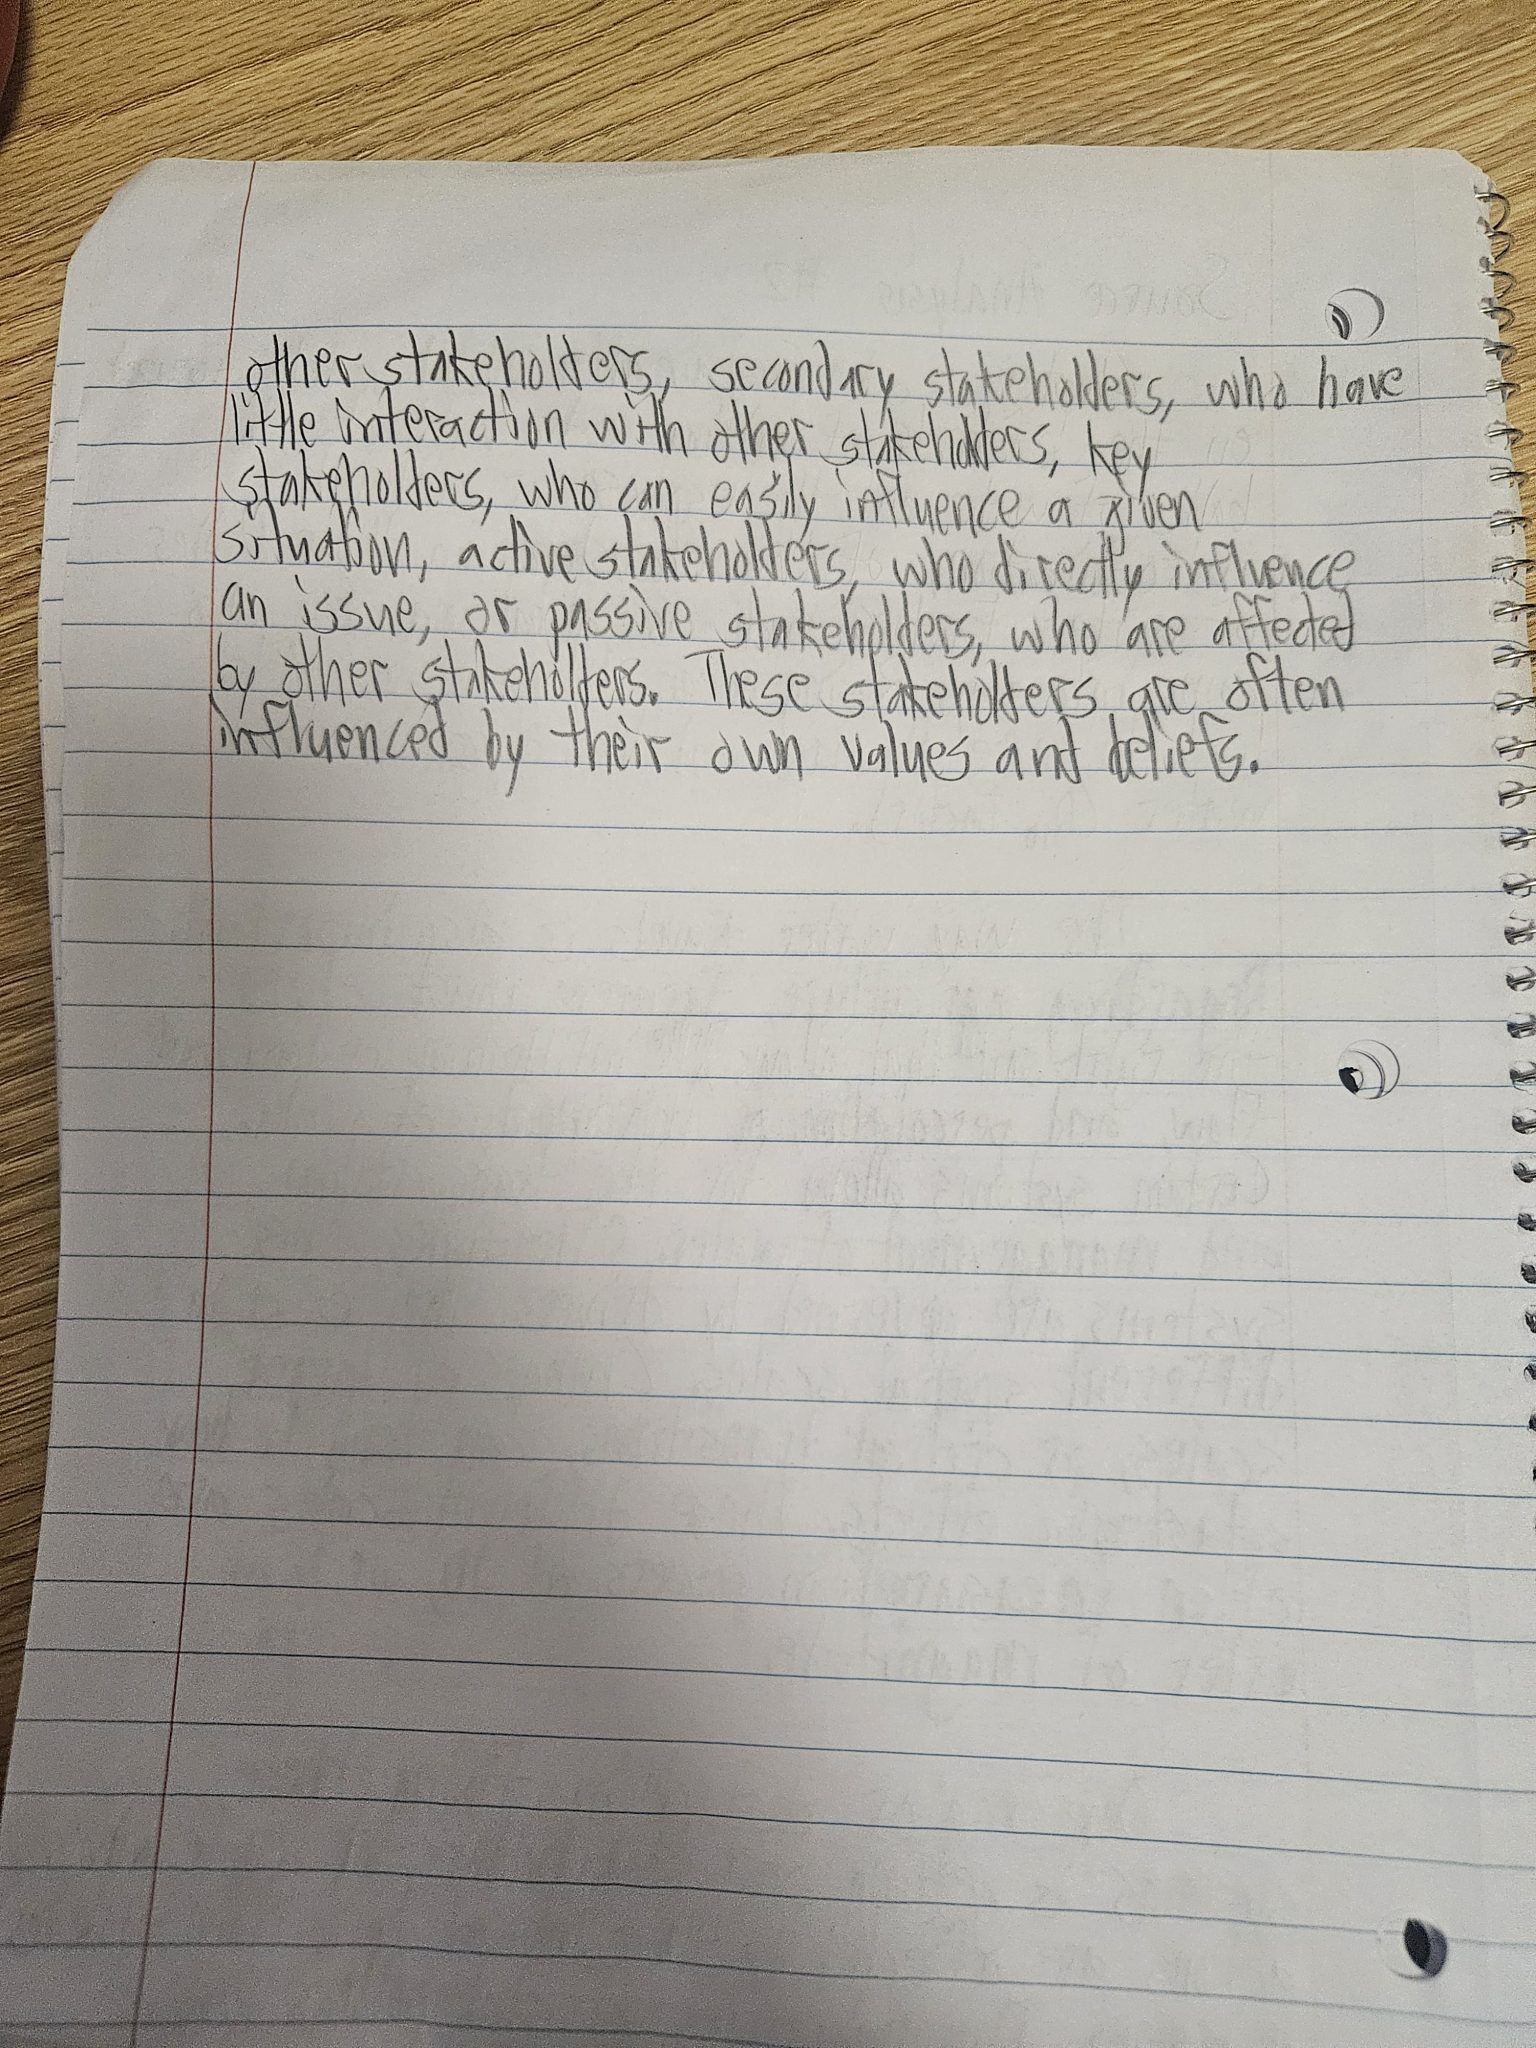 other stakeholders, secondary stakeholders, who have
little interaction with other stakeholders, key
stakeholders, who can easily influence a given
situation, active stakeholders, who directly influence
an issue, or passive stakeholders, who are affected
by other stakeholders. These stakeholders are often
influenced by their own values and beliefs.